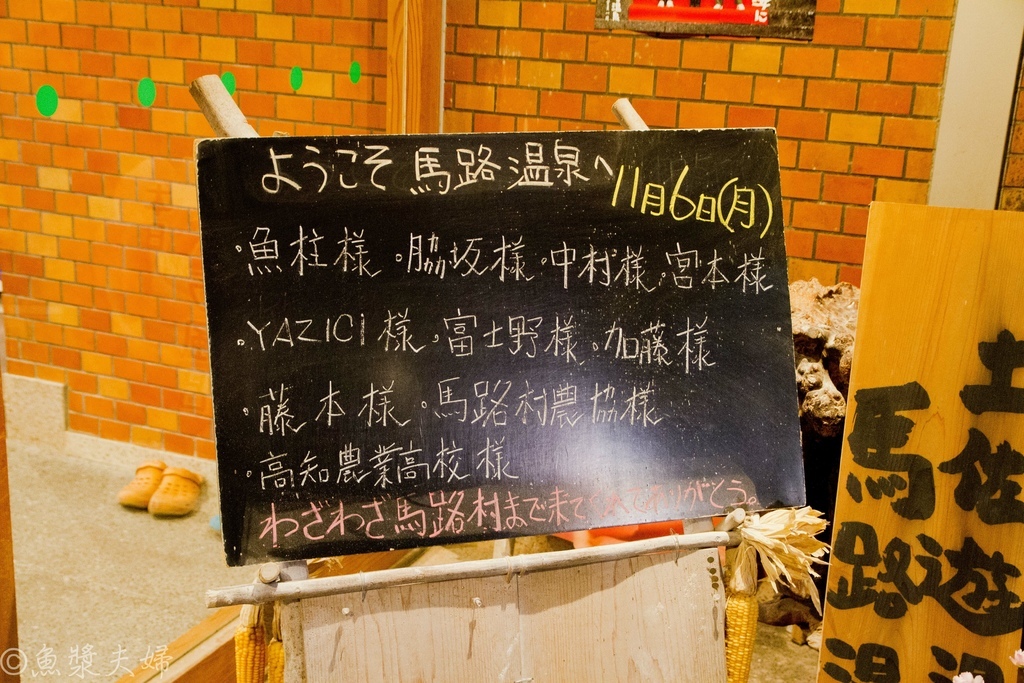 ようこそ 馬路温泉へ
11月6日(月)
・魚柱様・脇坂様・中村様・宮本様
・YAZICI様・富士野様・加藤様
・藤本様・馬路村農協様
・高知農業高校様
わざわざ馬路村まで来てくれてありがとう。
土佐遊
馬路温
©魚漿夫婦